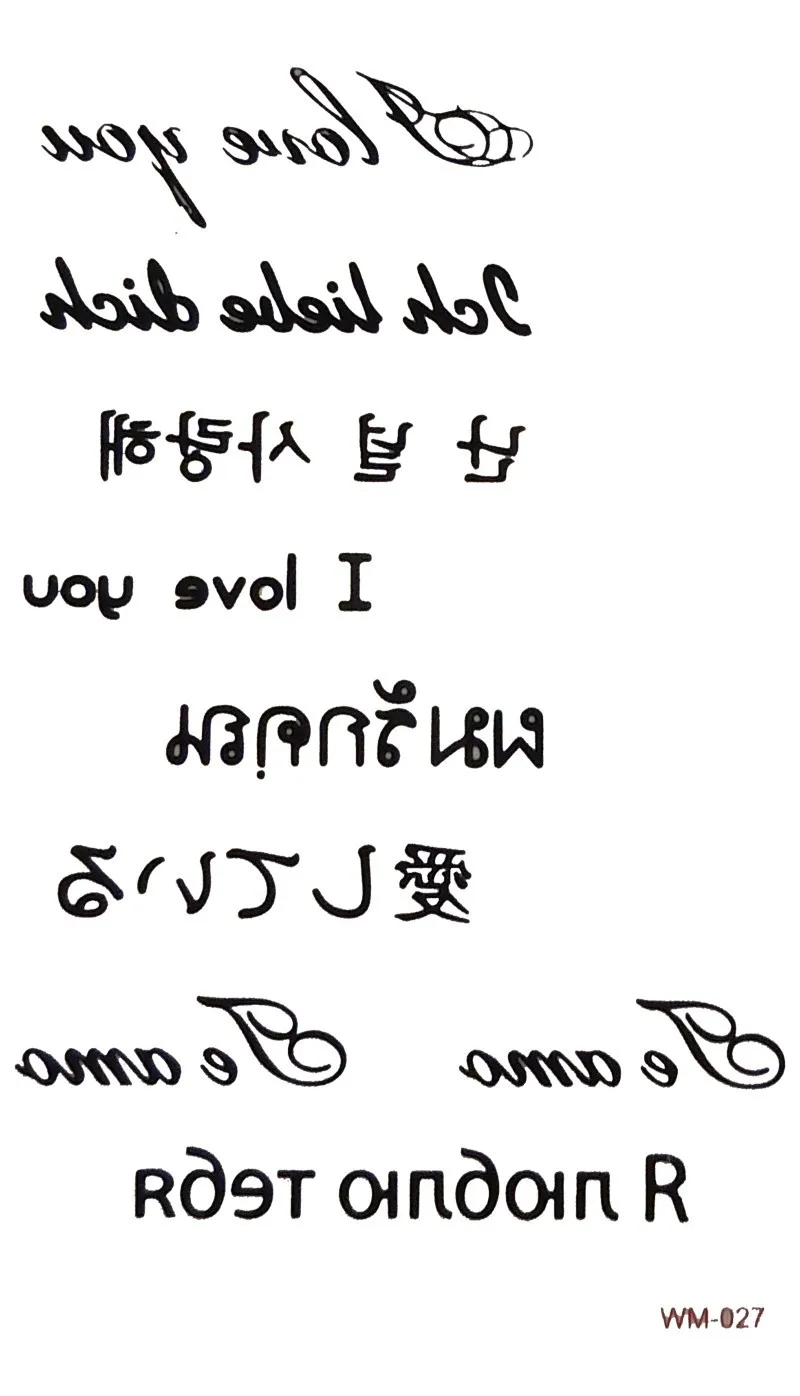 I love you
Ich liebe dich
난 널 사랑해
I love you
ผมรักคุณ
愛している
Te amo Te amo
Я люблю тебя
WM-027